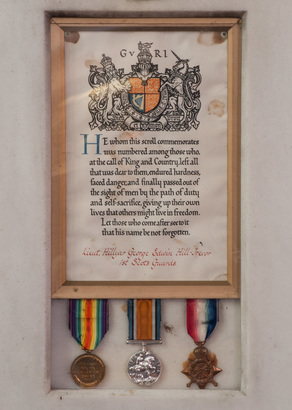 G V R I
HE whom this scroll commemorates
was numbered among those who,
at the call of King and Country, left all
that was dear to them, endured hardness,
faced danger, and finally passed out of
the sight of men by the path of duty
and self-sacrifice, giving up their own
lives that others might live in freedom.
Let those who come after see to it
that his name be not forgotten.
Lieut. Hillyar George Edwin Hill-Trevor
1st Scots Guards